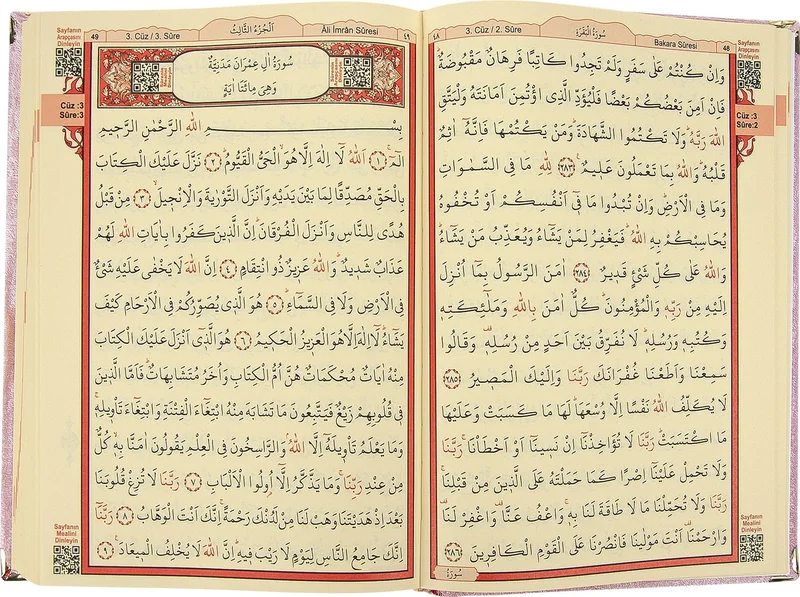 ٤٨
3. Cüz / 2. Sûre
سُورَةُ الْبَقَرَةِ
Bakara Sûresi
48
Sayfanın
Arapçasını
Dinleyin
Cüz :3
Sûre:2
وَاِنْ كُنْتُمْ عَلٰى سَفَرٍ وَلَمْ تَجِدُوا كَاتِبًا فَرِهَانٌ مَقْبُوضَةٌۜ
فَاِنْ اَمِنَ بَعْضُكُمْ بَعْضًا فَلْيُؤَدِّ الَّذِى اؤْتُمِنَ اَمَانَتَهُ وَلْيَتَّقِ
اللّٰهَ رَبَّهُۜ وَلَا تَكْتُمُوا الشَّهَادَةَۜ وَمَنْ يَكْتُمْهَا فَاِنَّهُٓ اٰثِمٌ
قَلْبُهُۜ وَاللّٰهُ بِمَا تَعْمَلُونَ عَلِيمٌ ﴿٢٨٣﴾ لِلّٰهِ مَا فِى السَّمٰوَاتِ
وَمَا فِى الْاَرْضِۜ وَاِنْ تُبْدُوا مَا فِٓى اَنْفُسِكُمْ اَوْ تُخْفُوهُ
يُحَاسِبْكُمْ بِهِ اللّٰهُۜ فَيَغْفِرُ لِمَنْ يَشَٓاءُ وَيُعَذِّبُ مَنْ يَشَٓاءُۜ
وَاللّٰهُ عَلٰى كُلِّ شَىْءٍ قَدِيرٌ ﴿٢٨٤﴾ اٰمَنَ الرَّسُولُ بِمَٓا اُنْزِلَ
اِلَيْهِ مِنْ رَبِّهِ وَالْمُؤْمِنُونَۜ كُلٌّ اٰمَنَ بِاللّٰهِ وَمَلٰٓئِكَتِهِ
وَكُتُبِهِ وَرُسُلِهِ۠ لَا نُفَرِّقُ بَيْنَ اَحَدٍ مِنْ رُسُلِهِ۠ وَقَالُوا
سَمِعْنَا وَاَطَعْنَا غُفْرَانَكَ رَبَّنَا وَاِلَيْكَ الْمَصِيرُ ﴿٢٨٥﴾
لَا يُكَلِّفُ اللّٰهُ نَفْسًا اِلَّا وُسْعَهَاۜ لَهَا مَا كَسَبَتْ وَعَلَيْهَا
مَا اكْتَسَبَتْۜ رَبَّنَا لَا تُؤَاخِذْنَٓا اِنْ نَسِينَٓا اَوْ اَخْطَأْنَاۚ رَبَّنَا
وَلَا تَحْمِلْ عَلَيْنَٓا اِصْرًا كَمَا حَمَلْتَهُ عَلَى الَّذِينَ مِنْ قَبْلِنَاۚ
رَبَّنَا وَلَا تُحَمِّلْنَا مَا لَا طَاقَةَ لَنَا بِهِۚ وَاعْفُ عَنَّا۠ وَاغْفِرْ لَنَا۠
وَارْحَمْنَا۠ اَنْتَ مَوْلٰينَا فَانْصُرْنَا عَلَى الْقَوْمِ الْكَافِرِينَ ﴿٢٨٦﴾
سُورَةُ
Sayfanın
Mealini
Dinleyin
49
3. Cüz / 3. Sûre
اَلْجُزْءُ الثَّالِثُ
Âli İmrân Sûresi
٤٩
Sayfanın
Arapçasını
Dinleyin
Cüz :3
Sûre:3
سُورَةُ اٰلِ عِمْرَانَ مَدَنِيَّةٌ
وَهِىَ مِائَتَا اٰيَةٍ
بِسْمِ اللّٰهِ الرَّحْمٰنِ الرَّحِيمِ
الٓمٓ ﴿١﴾ اَللّٰهُ لَٓا اِلٰهَ اِلَّا هُوَ الْحَىُّ الْقَيُّومُۜ ﴿٢﴾ نَزَّلَ عَلَيْكَ الْكِتَابَ
بِالْحَقِّ مُصَدِّقًا لِمَا بَيْنَ يَدَيْهِ وَاَنْزَلَ التَّوْرٰيةَ وَالْاِنْجِيلَۙ ﴿٣﴾ مِنْ قَبْلُ
هُدًى لِلنَّاسِ وَاَنْزَلَ الْفُرْقَانَۜ اِنَّ الَّذِينَ كَفَرُوا بِاٰيَاتِ اللّٰهِ لَهُمْ
عَذَابٌ شَدِيدٌۜ وَاللّٰهُ عَزِيزٌ ذُو انْتِقَامٍ ﴿٤﴾ اِنَّ اللّٰهَ لَا يَخْفٰى عَلَيْهِ شَىْءٌ
فِى الْاَرْضِ وَلَا فِى السَّمَٓاءِۜ ﴿٥﴾ هُوَ الَّذِى يُصَوِّرُكُمْ فِى الْاَرْحَامِ كَيْفَ
يَشَٓاءُۜ لَٓا اِلٰهَ اِلَّا هُوَ الْعَزِيزُ الْحَكِيمُ ﴿٦﴾ هُوَ الَّذِٓى اَنْزَلَ عَلَيْكَ الْكِتَابَ
مِنْهُ اٰيَاتٌ مُحْكَمَاتٌ هُنَّ اُمُّ الْكِتَابِ وَاُخَرُ مُتَشَابِهَاتٌۜ فَاَمَّا الَّذِينَ
فِى قُلُوبِهِمْ زَيْغٌ فَيَتَّبِعُونَ مَا تَشَابَهَ مِنْهُ ابْتِغَٓاءَ الْفِتْنَةِ وَابْتِغَٓاءَ تَأْوِيلِهِۚ
وَمَا يَعْلَمُ تَأْوِيلَهُٓ اِلَّا اللّٰهُۢ وَالرَّاسِخُونَ فِى الْعِلْمِ يَقُولُونَ اٰمَنَّا بِهِۙ كُلٌّ
مِنْ عِنْدِ رَبِّنَاۚ وَمَا يَذَّكَّرُ اِلَّٓا اُولُوا الْاَلْبَابِ ﴿٧﴾ رَبَّنَا لَا تُزِغْ قُلُوبَنَا
بَعْدَ اِذْ هَدَيْتَنَا وَهَبْ لَنَا مِنْ لَدُنْكَ رَحْمَةًۚ اِنَّكَ اَنْتَ الْوَهَّابُ ﴿٨﴾ رَبَّنَٓا
اِنَّكَ جَامِعُ النَّاسِ لِيَوْمٍ لَا رَيْبَ فِيهِۜ اِنَّ اللّٰهَ لَا يُخْلِفُ الْمِيعَادَ۟ ﴿٩﴾
Sayfanın
Mealini
Dinleyin